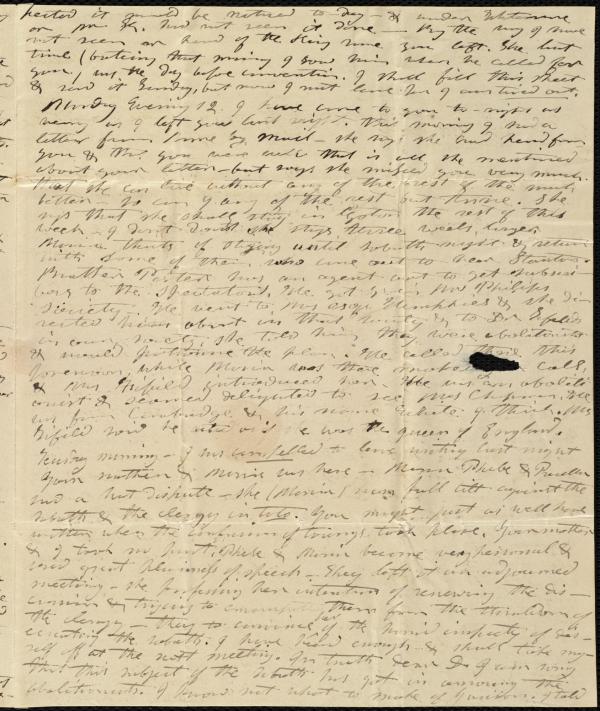 pected it would be noticed to day - & under
or Mr. K. had not seen it done - By the way I have
not seen or heard of the King since you left. She last
time (but one that morning I saw him when he called for
you), was the day before convention. I shall fill this sheet
& send it Sunday, but now I must leave for I am tired out.
Monday Evening 12, I have come to you to-night as
weary as I left you last night. This morning I had a
letter from Anne by mail - she says she had heard from
you & that you were well that is all she mentioned
about your letter - but says she missed you very much.
that she can live without any of the rest of the mutts
better - So can I any of the rest but Anne. She
says that she shall stay in Boston the rest of this
week - I don't doubt she stays three weeks longer.
Maria thinks of staying until Sabbath night & return
with some of them, who come out to hear Stanton.
Brother Porter has an agent out to get subscri
bers to the Spectator. He got Mr Philips
Society. He went to Mrs Asa Humphries & she di
rected him about in that vicinity & to Dr. Fifield
in our society, she told him they were abolitionists
& would patronize the plan. He called there this
forenoon, while Maria was there making a call,
& Mrs Fifield introduced her. He was an aboliti
onist & seemed delighted to see Mrs Chapman. He
was from Cambridge, & his name I think. Mrs
Fifield said he acted as if she was the queen of England.
Tuesday morning - I was compelled to leave writing last night
Your mother & Maria was here - Maria Phebe & Caroline
had a hot dispute - she (Maria) runs full tilt against the
Sabbath & the clergy in toto. You might just as well have
written when the confusion of tongues took place. Your mother
& I took no part, Phebe & Maria became very personal &
used great plainness of speech - They left it in an adjourned
meeting - she professing her intention of renewing the dis-
cussion & trying to emancipate them from the thraldom of
the clergy - they to convince her of the horrid impiety of des-
ecrating the Sabbath. I have heard enough & shall take my-
self off at the next meeting. In truth dear D. I am sorry
that this subject of the Sabbath has got in among the
abolitionists. I know not what to make of Garrison. I told